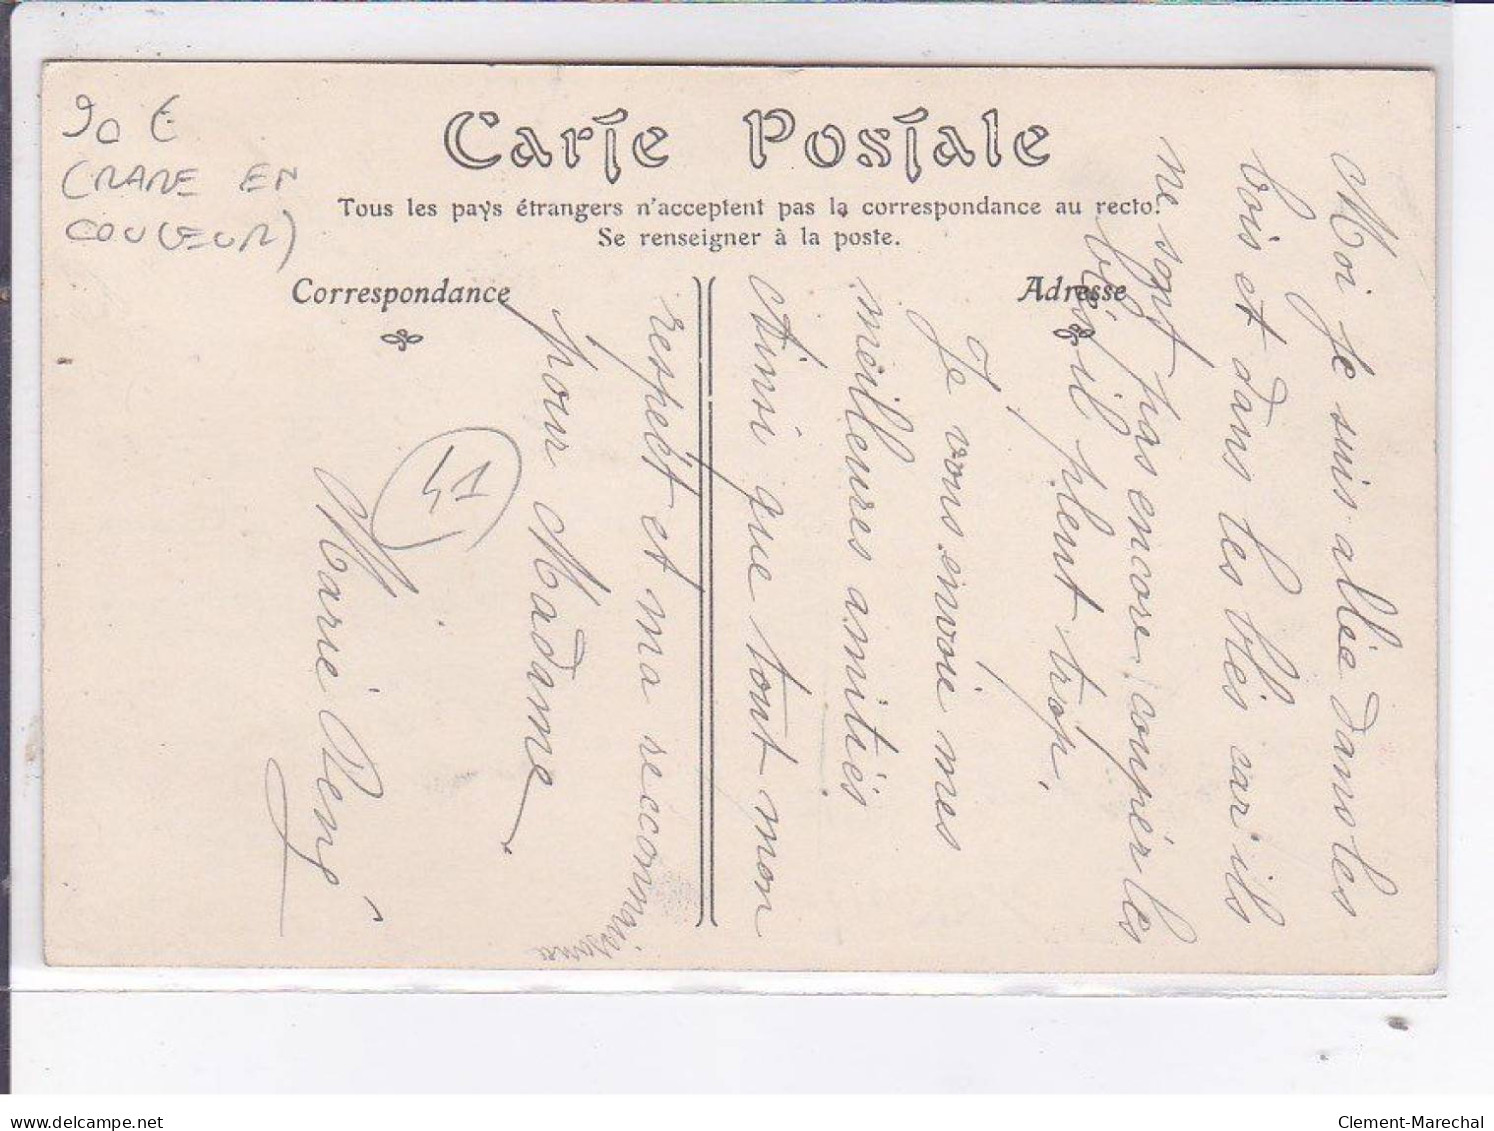 90 €
(RARE EN
COULEUR)
Carte Postale
Tous les pays étrangers n'acceptent pas la correspondance au recto.
Se renseigner à la poste.
Correspondance
Adresse
Moi je suis allée dans les
bois et dans les blés car ils
ne sont pas encore coupér les
blés il pleut trop.
Je vous envoie mes
meilleures amitiés
Ainsi que tout mon
respet et ma reconnaissance
pour Madame
Marie
51
delcampe.net
Clement-Marechal